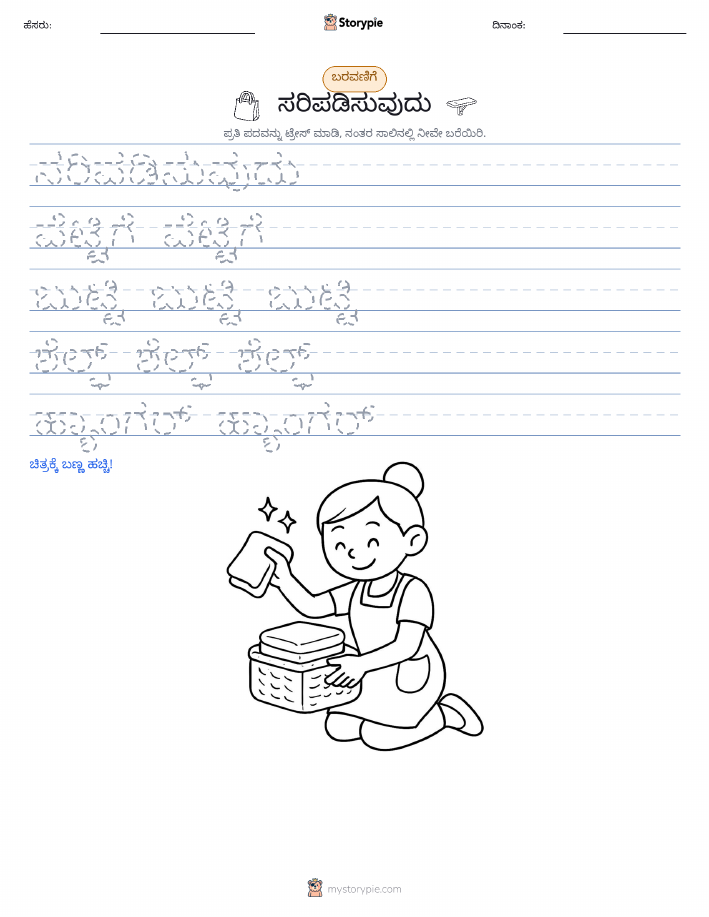 ಹೆಸರು:
Storypie
ದಿನಾಂಕ:
ಬರವಣಿಗೆ
ಸರಿಪಡಿಸುವುದು
ಪ್ರತಿ ಪದವನ್ನು ಟ್ರೇಸ್ ಮಾಡಿ, ನಂತರ ಸಾಲಿನಲ್ಲಿ ನೀವೇ ಬರೆಯಿರಿ.
ಸರಿಪಡಿಸುವುದು
ಪೆಟ್ಟಿಗೆ ಪೆಟ್ಟಿಗೆ
ಬುಟ್ಟಿ ಬುಟ್ಟಿ ಬುಟ್ಟಿ
ಶೆಲ್ಫ್ ಶೆಲ್ಫ್ ಶೆಲ್ಫ್
ಹ್ಯಾಂಗರ್ ಹ್ಯಾಂಗರ್
ಚಿತ್ರಕ್ಕೆ ಬಣ್ಣ ಹಚ್ಚಿ!
mystorypie.com